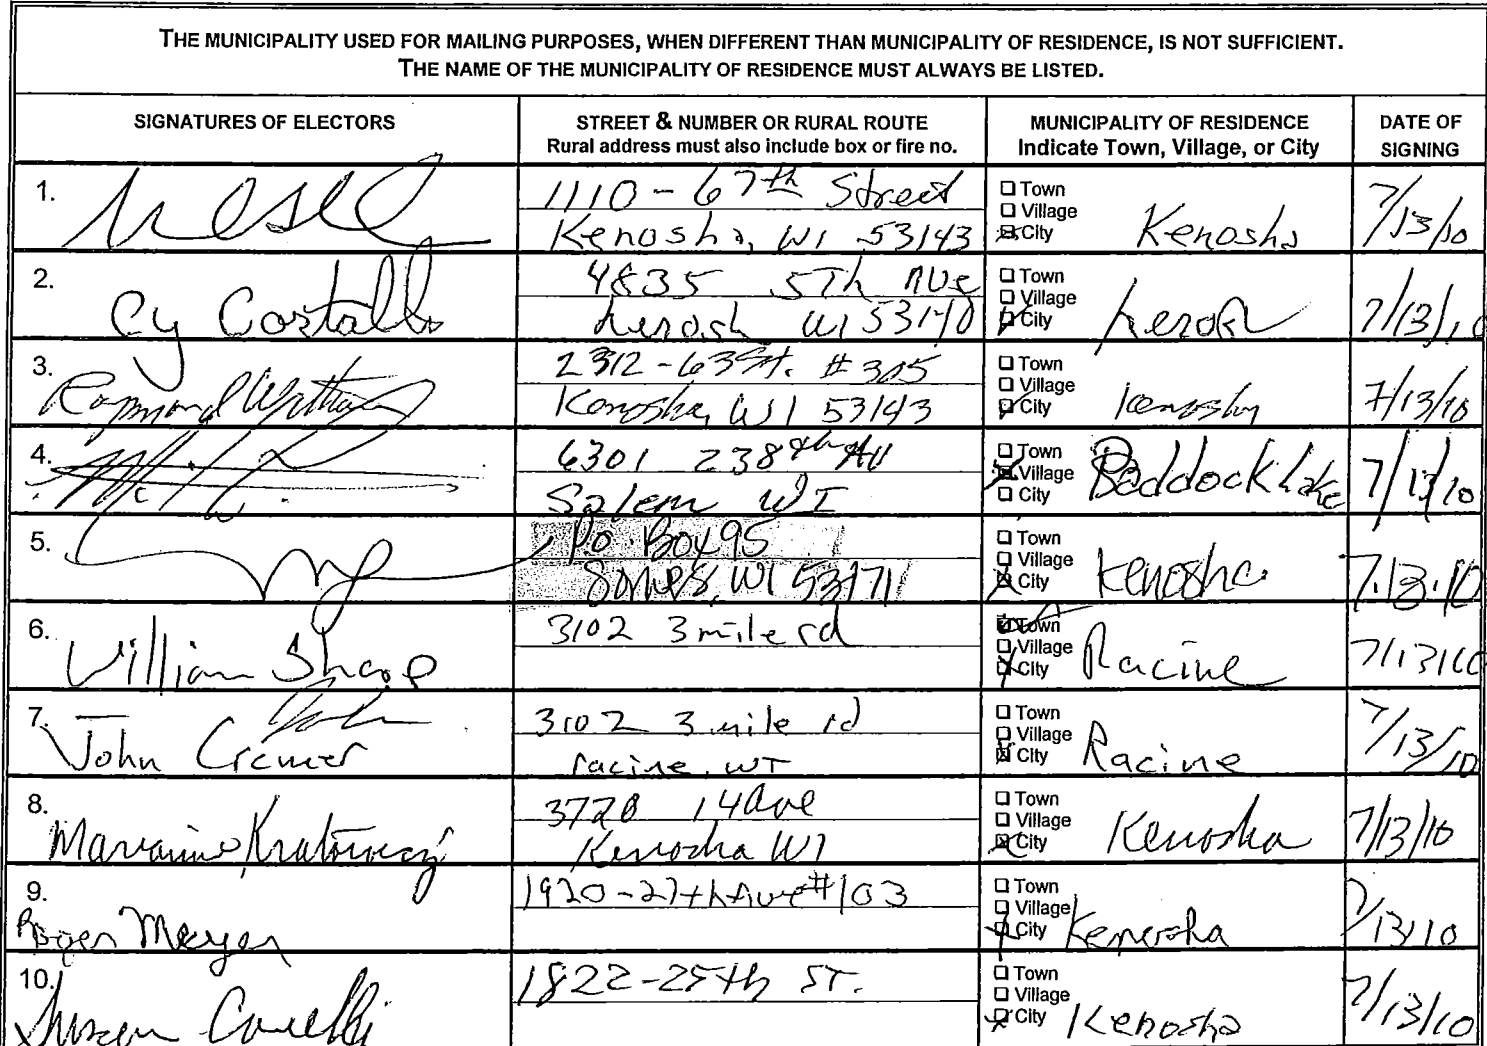 THE MUNICIPALITY USED FOR MAILING PURPOSES, WHEN DIFFERENT THAN MUNICIPALITY OF RESIDENCE, IS NOT SUFFICIENT.
THE NAME OF THE MUNICIPALITY OF RESIDENCE MUST ALWAYS BE LISTED.
SIGNATURES OF ELECTORS
STREET & NUMBER OR RURAL ROUTE
Rural address must also include box or fire no.
MUNICIPALITY OF RESIDENCE
Indicate Town, Village, or City
DATE OF
SIGNING
1.
1110 - 67th Street
Kenosha, WI 53143
Town
Village
City
Kenosha
7/13/10
2.
Cy Costallo
4835 5Th AVe
WI 53140
Town
Village
City
7/13/10
3.
Raymond
2312-63 St. #305
Kenosha, WI 53143
Town
Village
City
Kenosha
7/13/10
4.
6301 238th AV
Salem WI
Town
Village
City
Paddock Lake
7/13/10
5.
PO. Box 95
Somers, WI 53171
Town
Village
City
Kenosha
7.13.10
6.
William Sharp
3102 3 mile rd
Town
Village
City
Racine
7/13/10
7.
John Cremer
John
3102 3 mile rd
racine, WI
Town
Village
City
Racine
7/13/10
8.
14 ave
Kenosha WI
Town
Village
City
Kenosha
7/13/10
9.
Roger Meyer
1920-27th Ave #103
Town
Village
City
Kenosha
7/13/10
10.
Susan
1822-25th ST.
Town
Village
City
Kenosha
7/13/10